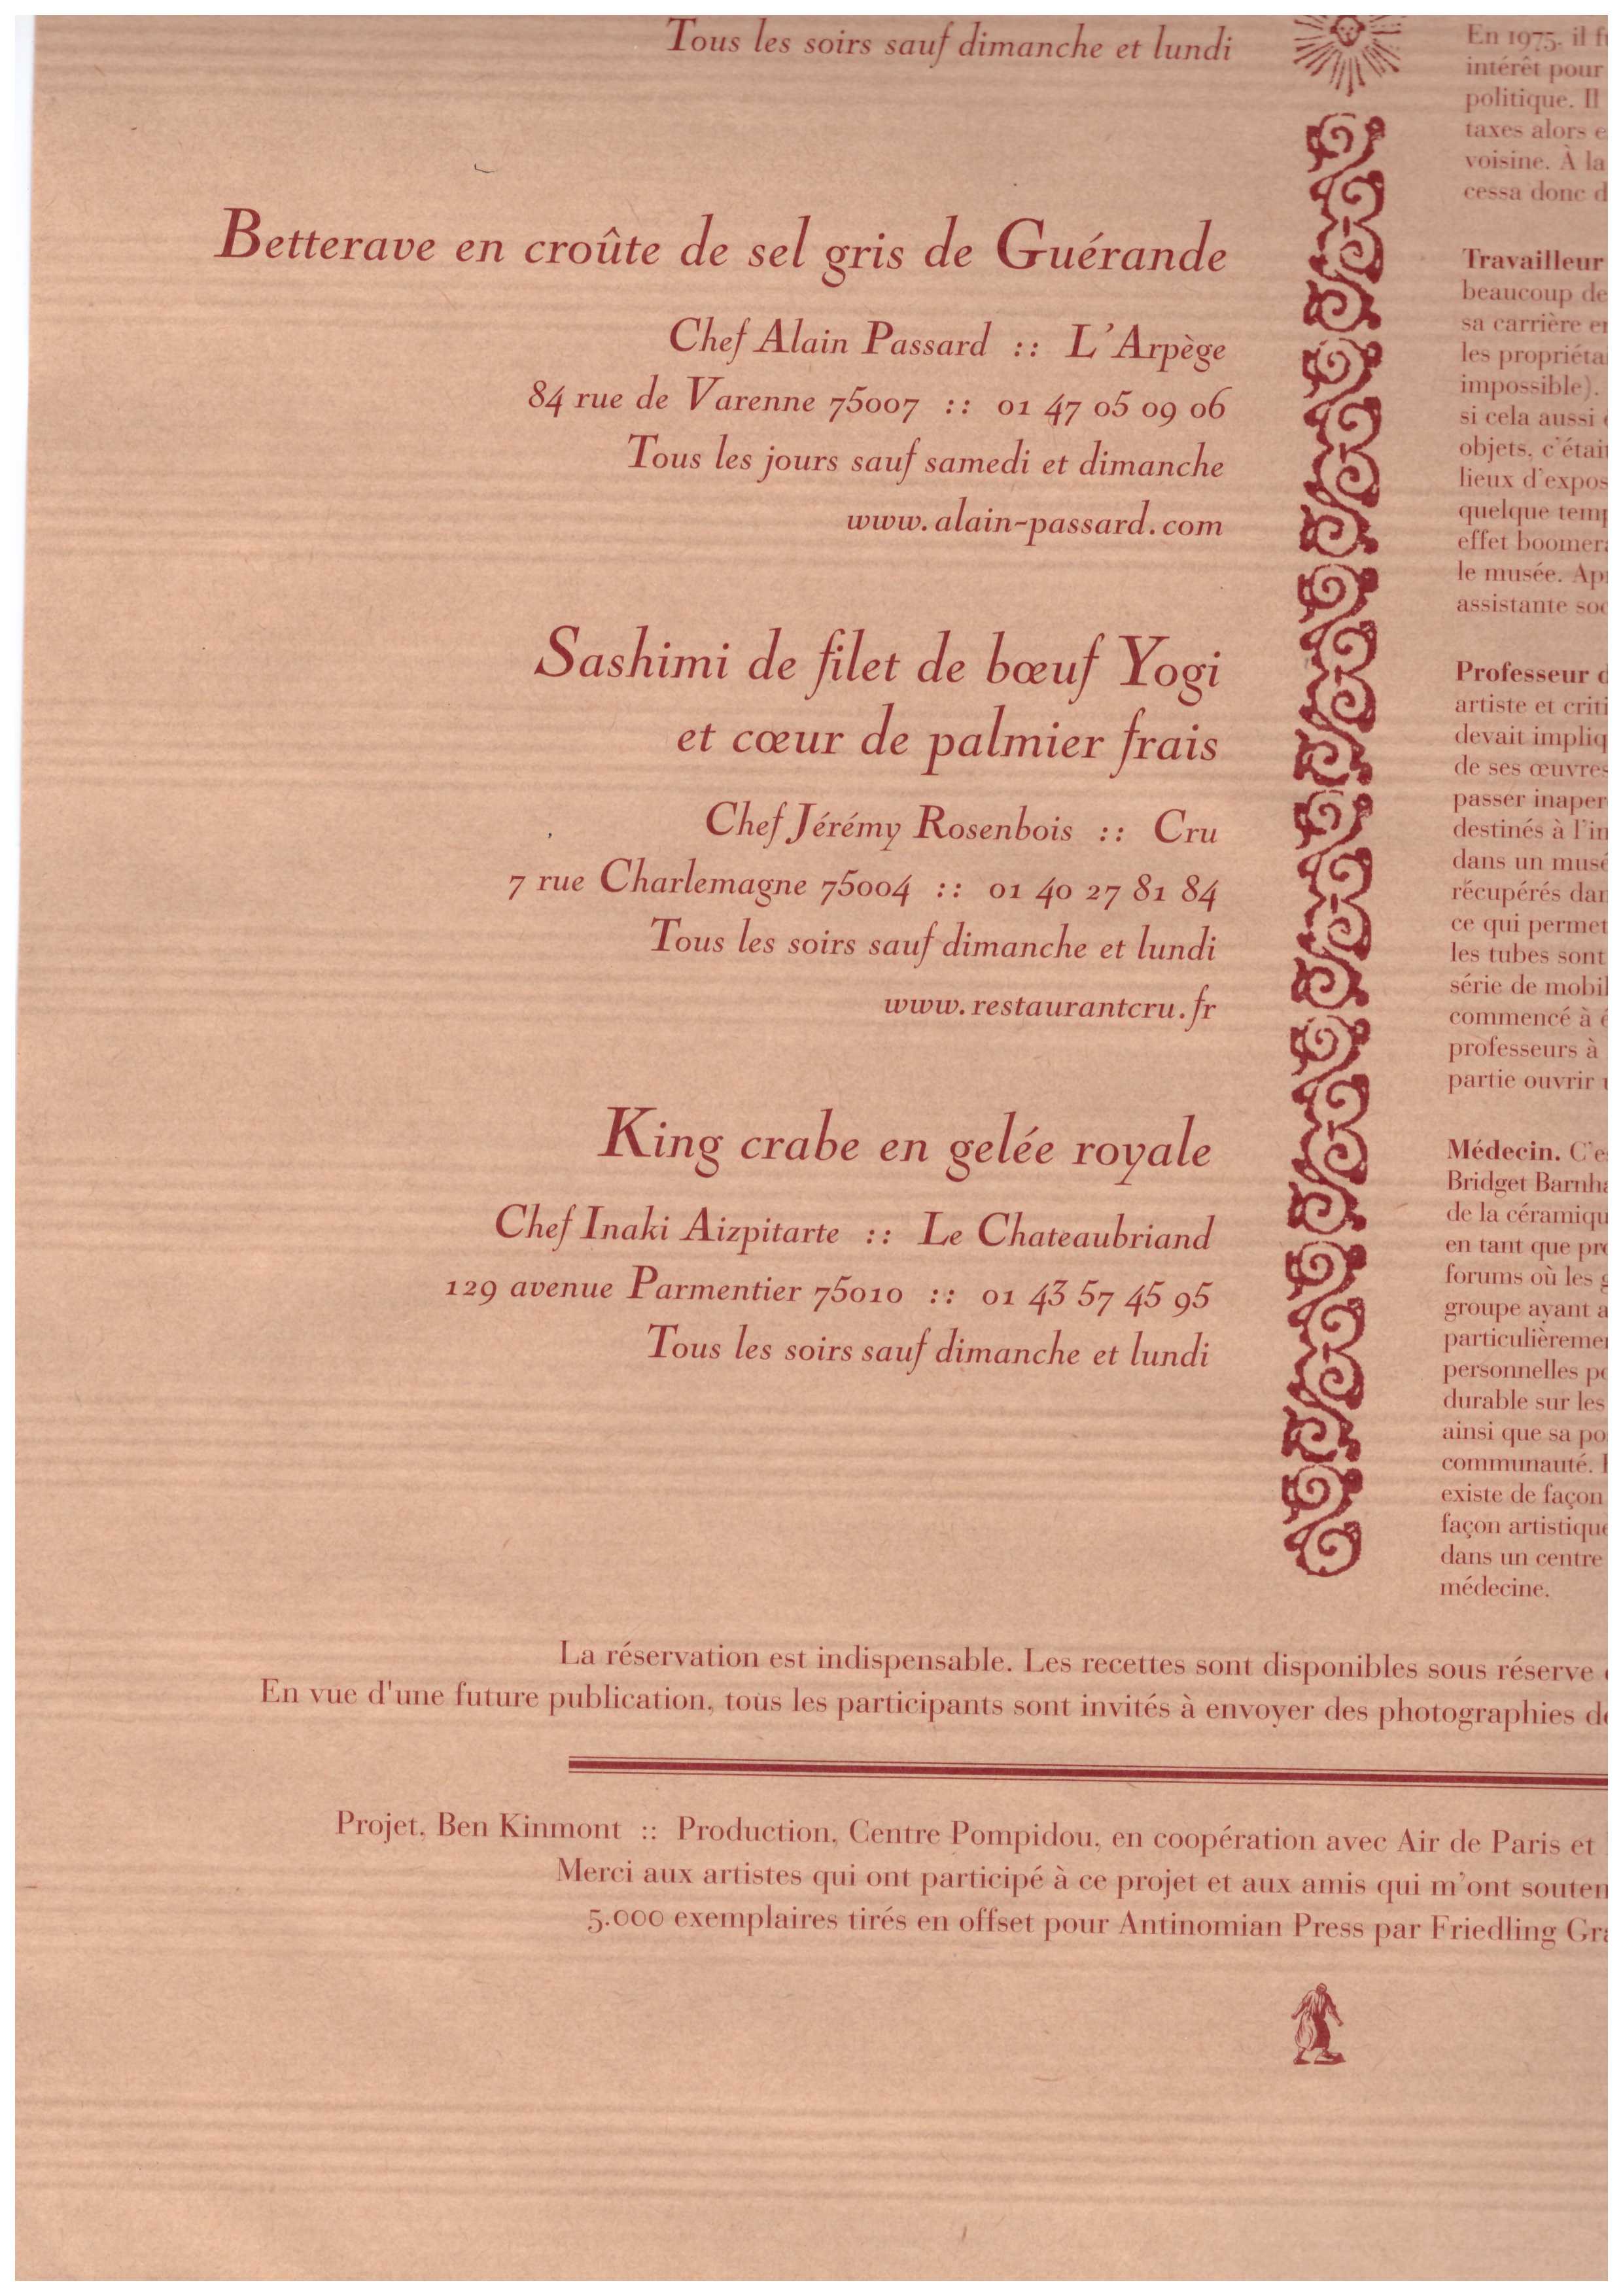 Tous les soirs sauf dimanche et lundi
Betterave en croûte de sel gris de Guérande
Chef Alain Passard :: L'Arpège
84 rue de Varenne 75007 :: 01 47 05 09 06
Tous les jours sauf samedi et dimanche
www.alain-passard.com
Sashimi de filet de bœuf Yogi
et cœur de palmier frais
Chef Jérémy Rosenbois :: Cru
7 rue Charlemagne 75004 :: 01 40 27 81 84
Tous les soirs sauf dimanche et lundi
www.restaurantcru.fr
King crabe en gelée royale
Chef Inaki Aizpitarte :: Le Chateaubriand
129 avenue Parmentier 75010 :: 01 43 57 45 95
Tous les soirs sauf dimanche et lundi
En 1975, il
intérêt pour
politique. Il
taxes alors
voisine. À la
cessa donc
Travailleur
beaucoup de
sa carrière
les
impossible).
si cela aussi
objets, c'était
lieux
quelque
effet
le musée.
assistante
Professeur
artiste et
devait
de ses œuvres
passer
destinés à
dans un
récupérés
ce qui permet
les tubes sont
série de
commencé à
professeurs à
partie ouvrir
Médecin.
Bridget
de la
en tant que
forums où les
groupe ayant
particulièrement
personnelles
durable sur les
ainsi que sa
communauté.
existe de façon
façon artistique
dans un centre
médecine.
La réservation est indispensable. Les recettes sont disponibles sous réserve
En vue d'une future publication, tous les participants sont invités à envoyer des photographies
Projet, Ben Kinmont :: Production, Centre Pompidou, en coopération avec Air de Paris et
Merci aux artistes qui ont participé à ce projet et aux amis qui m'ont
5.000 exemplaires tirés en offset pour Antinomian Press par Friedling